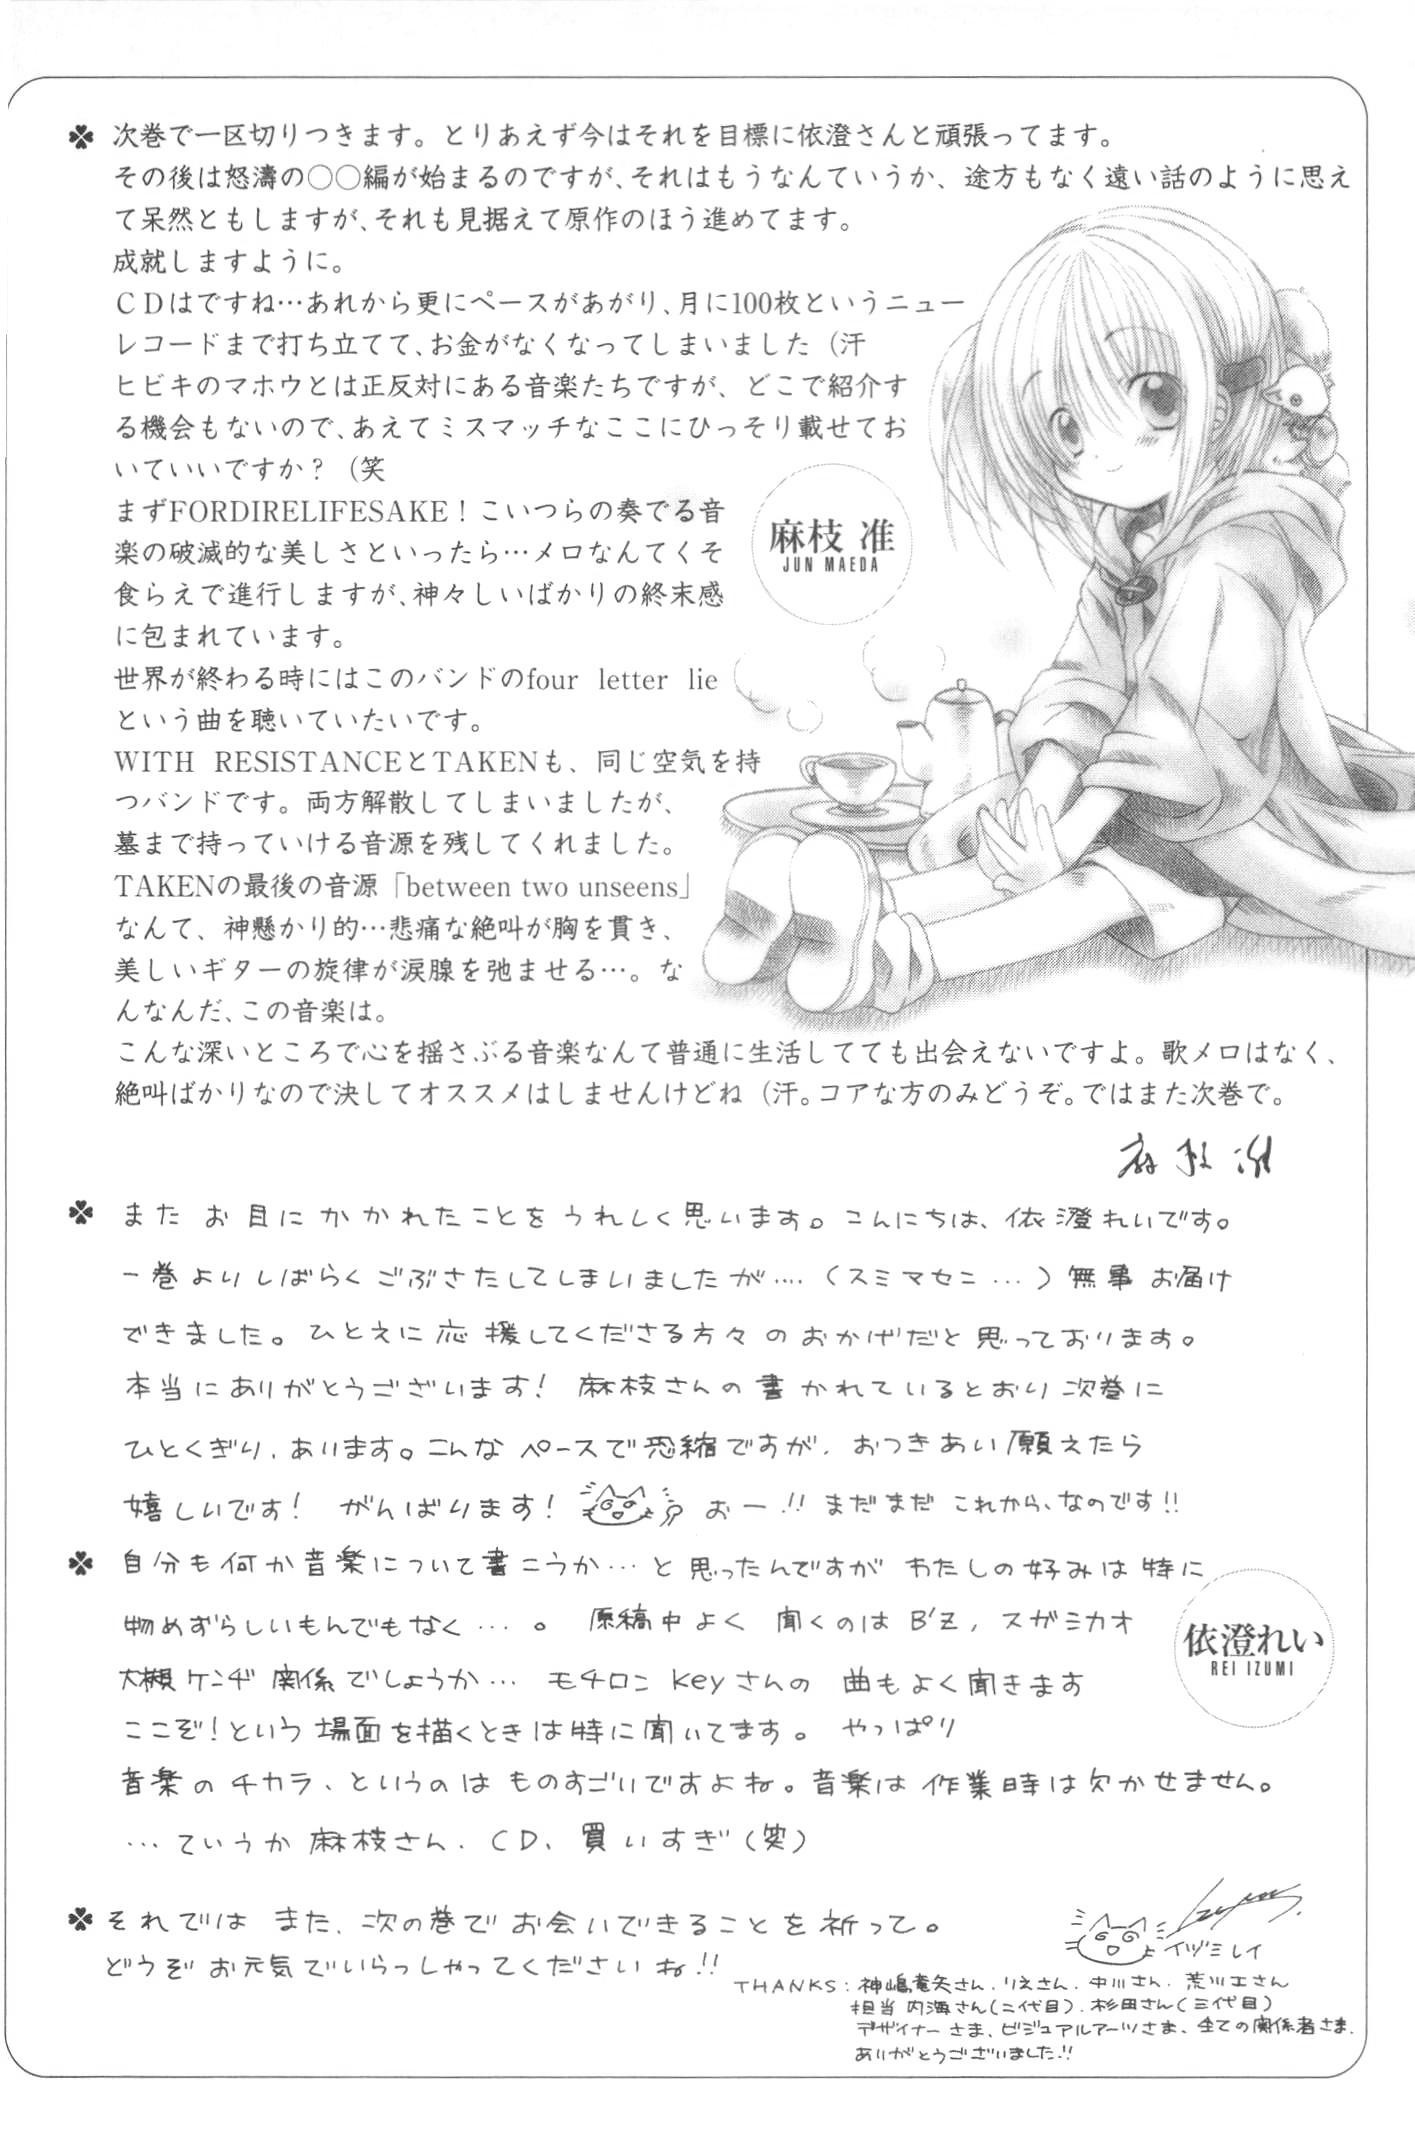 次巻で一区切りつきます。とりあえず今はそれを目標に依澄さんと頑張ってます。
その後は怒濤の〇〇編が始まるのですが、それはもうなんていうか、途方もなく遠い話のように思え
て呆然ともしますが、それも見据えて原作のほう進めてます。
成就しますように。
ＣＤはですね…あれから更にペースがあがり、月に100枚というニュー
レコードまで打ち立てて、お金がなくなってしまいました（汗
ヒビキのマホウとは正反対にある音楽たちですが、どこで紹介す
る機会もないので、あえてミスマッチなここにひっそり載せてお
いていいですか？（笑
まずFORDIRELIFESAKE！こいつらの奏でる音
楽の破滅的な美しさといったら…メロなんてくそ
食らえで進行しますが、神々しいばかりの終末感
に包まれています。
世界が終わる時にはこのバンドのfour letter lie
という曲を聴いていたいです。
WITH RESISTANCEとTAKENも、同じ空気を持
つバンドです。両方解散してしまいましたが、
墓まで持っていける音源を残してくれました。
TAKENの最後の音源「between two unseens」
なんて、神懸かり的…悲痛な絶叫が胸を貫き、
美しいギターの旋律が涙腺を弛ませる…。な
んなんだ、この音楽は。
こんな深いところで心を揺さぶる音楽なんて普通に生活してても出会えないですよ。歌メロはなく、
絶叫ばかりなので決してオススメはしませんけどね（汗。コアな方のみどうぞ。ではまた次巻で。
麻枝 准
JUN MAEDA
麻枝准
また お目にかかれたことをうれしく思います。こんにちは、依澄れいです。
一巻よりしばらくごぶさたしてしまいましたが‥‥（スミマセニ…）無事お届け
できました。ひとえに応援してくださる方々のおかげだと思っております。
本当にありがとうございます！麻枝さんの書かれているとおり次巻に
ひとくぎり、あります。こんなペースで恐縮ですが、おつきあい願えたら
嬉しいです！ がんばります！ おー!! まだまだ これから、なのです!!
自分も何か音楽について書こうか…と思ったんですが わたしの好みは特に
物めずらしいもんでもなく…。 原稿中よく 聞くのは B'Z, スガシカオ
大槻ケンヂ 関係でしょうか… モチロン Keyさんの 曲もよく聞きます
ここぞ！という場面を描くときは特に聞いてます。 やっぱり
音楽のチカラ、というのは ものすごいですよね。音楽は作業時は欠かせません。
…ていうか 麻枝さん、CD、買いすぎ（笑）
依澄れい
REI IZUMI
それでは また、次の巻でお会いできることを祈って。
どうぞお元気でいらっしゃってくださいね!!
イヅミレイ
THANKS：神嶋竜矢さん、りえさん、中川さん、荒川工さん
担当 内海さん（二代目）、杉田さん（三代目）
デザイナーさま、ビジュアルアーツさま、全ての関係者さま、
ありがとうございました!!